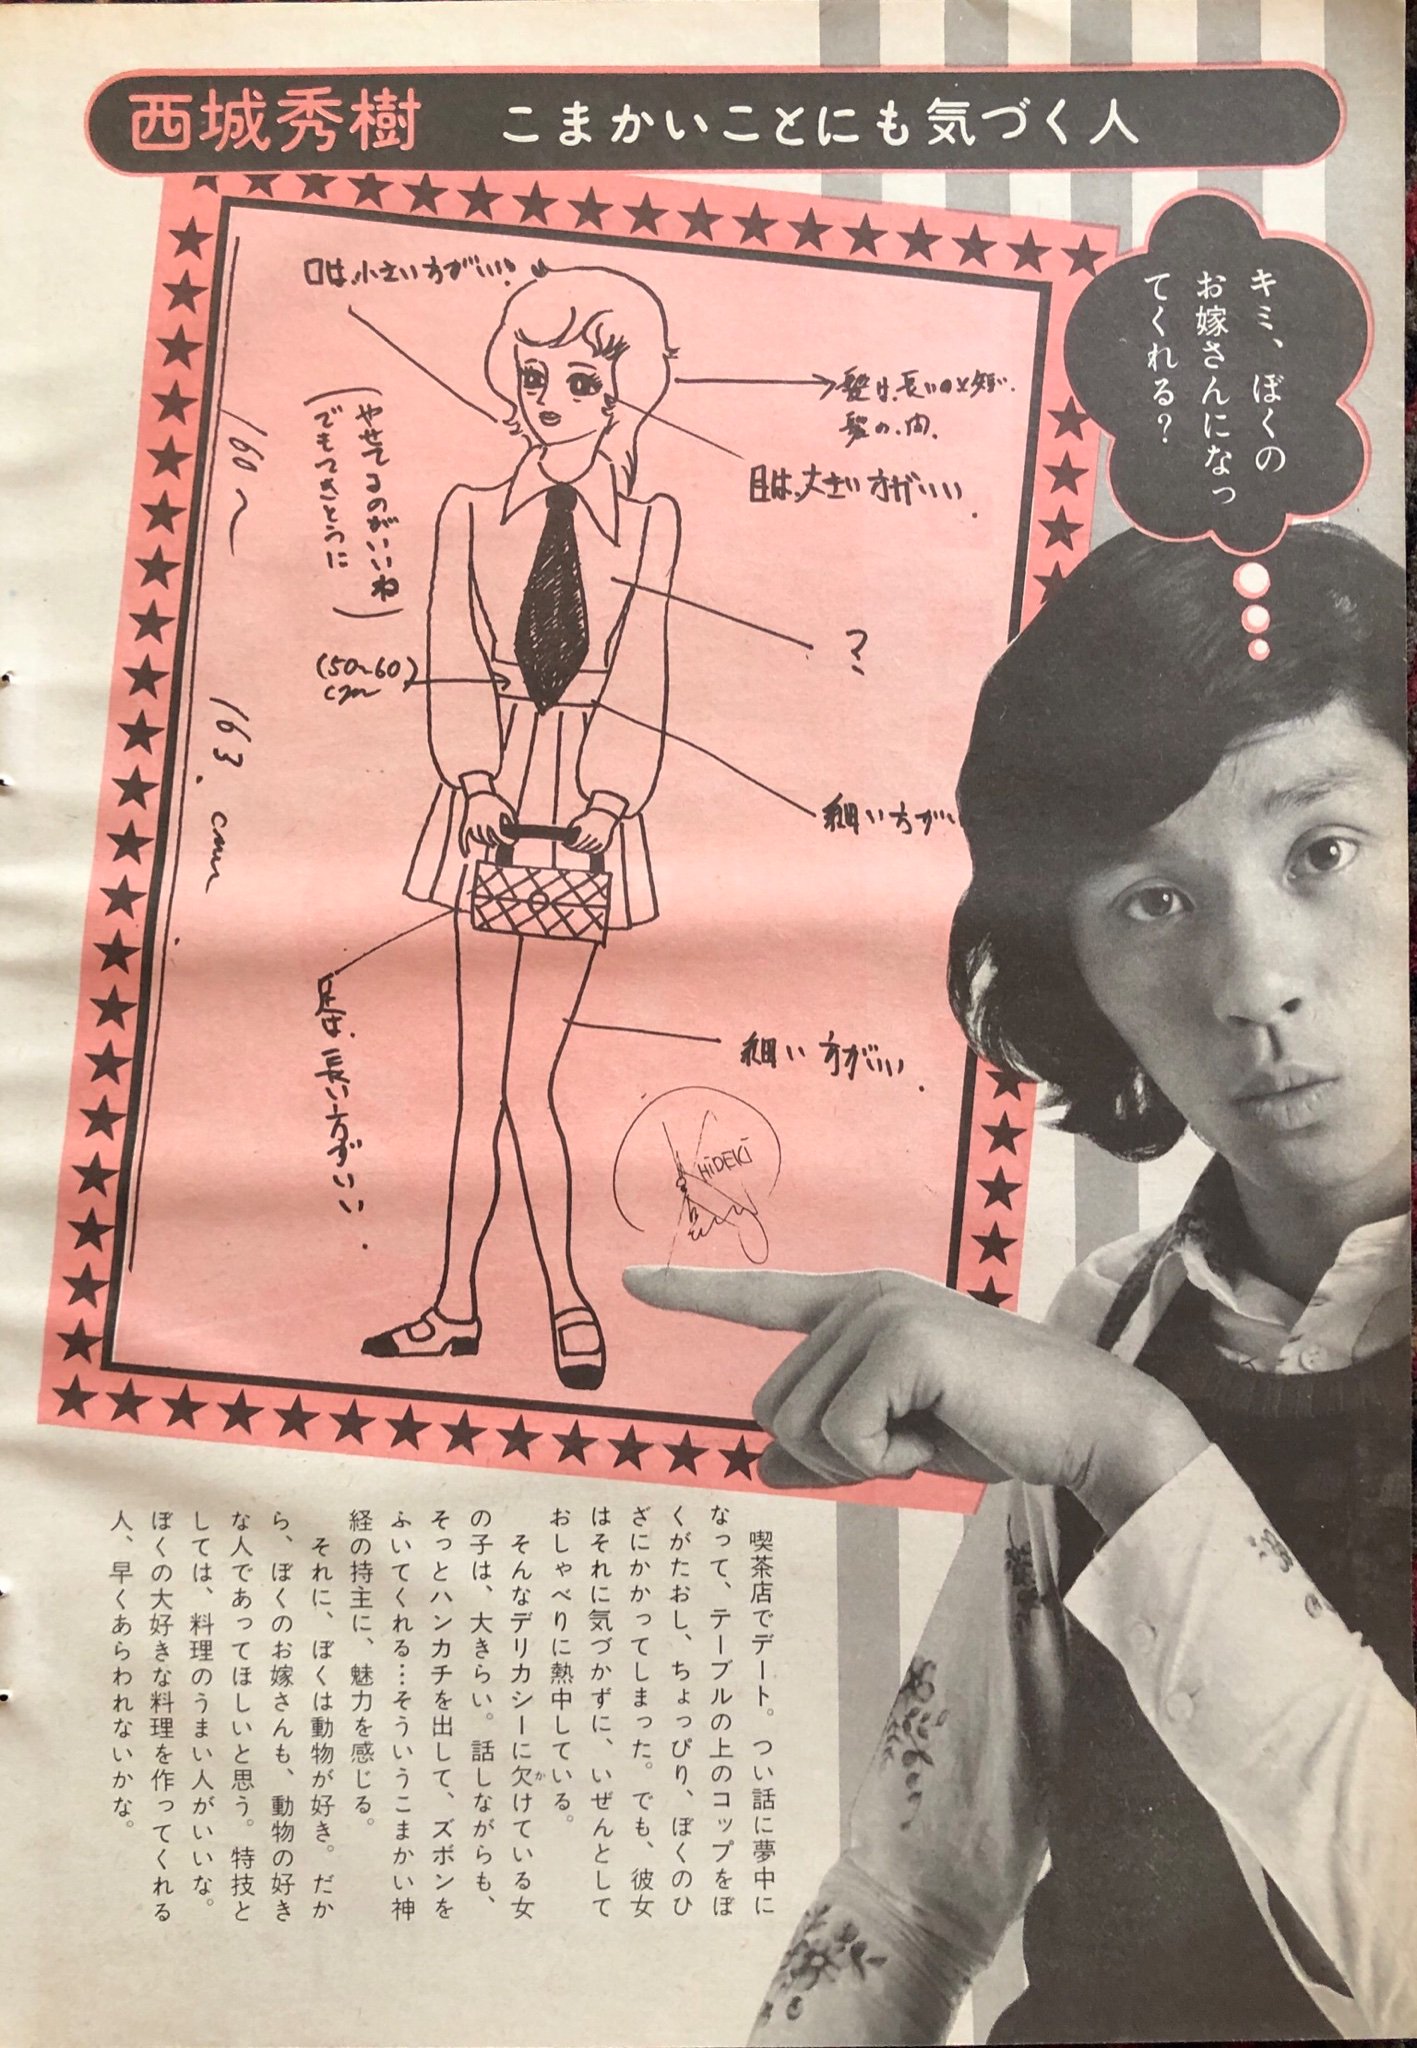 西城秀樹 こまかいことにも気づく人
キミ、ぼくの
お嫁さんになっ
てくれる?
口は、小さい方がいい。
髪は、長いのと短い
髪の、間。
目は、大きい方がいい。
(やせてるのがいいね
でもてきとうに)
160〜163.cm
(50〜60)
cm
?
細い方が
足は、長い方がいい.
細い方がいい.
HiDEKi
喫茶店でデート。つい話に夢中に
なって、テーブルの上のコップをぼ
くがたおし、ちょっぴり、ぼくのひ
ざにかかってしまった。でも、彼女
はそれに気づかずに、いぜんとして
おしゃべりに熱中している。
そんなデリカシーに欠(か)けている女
の子は、大きらい。話しながらも、
そっとハンカチを出して、ズボンを
ふいてくれる…そういうこまかい神
経の持主に、魅力を感じる。
それに、ぼくは動物が好き。だか
ら、ぼくのお嫁さんも、動物の好き
な人であってほしいと思う。特技と
しては、料理のうまい人がいいな。
ぼくの大好きな料理を作ってくれる
人、早くあらわれないかな。